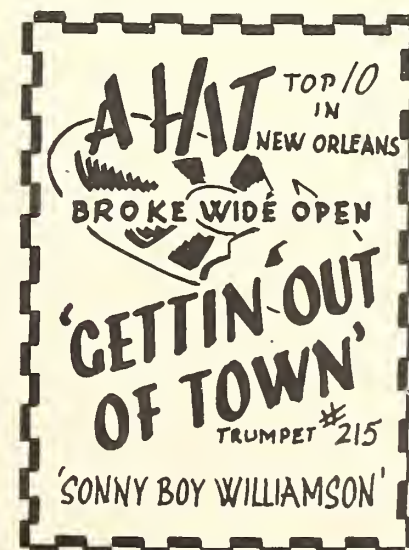 A HIT TOP 10
IN
NEW ORLEANS
BROKE WIDE OPEN
'GETTIN 'OUT
OF TOWN'
TRUMPET #215
'SONNY BOY WILLIAMSON'